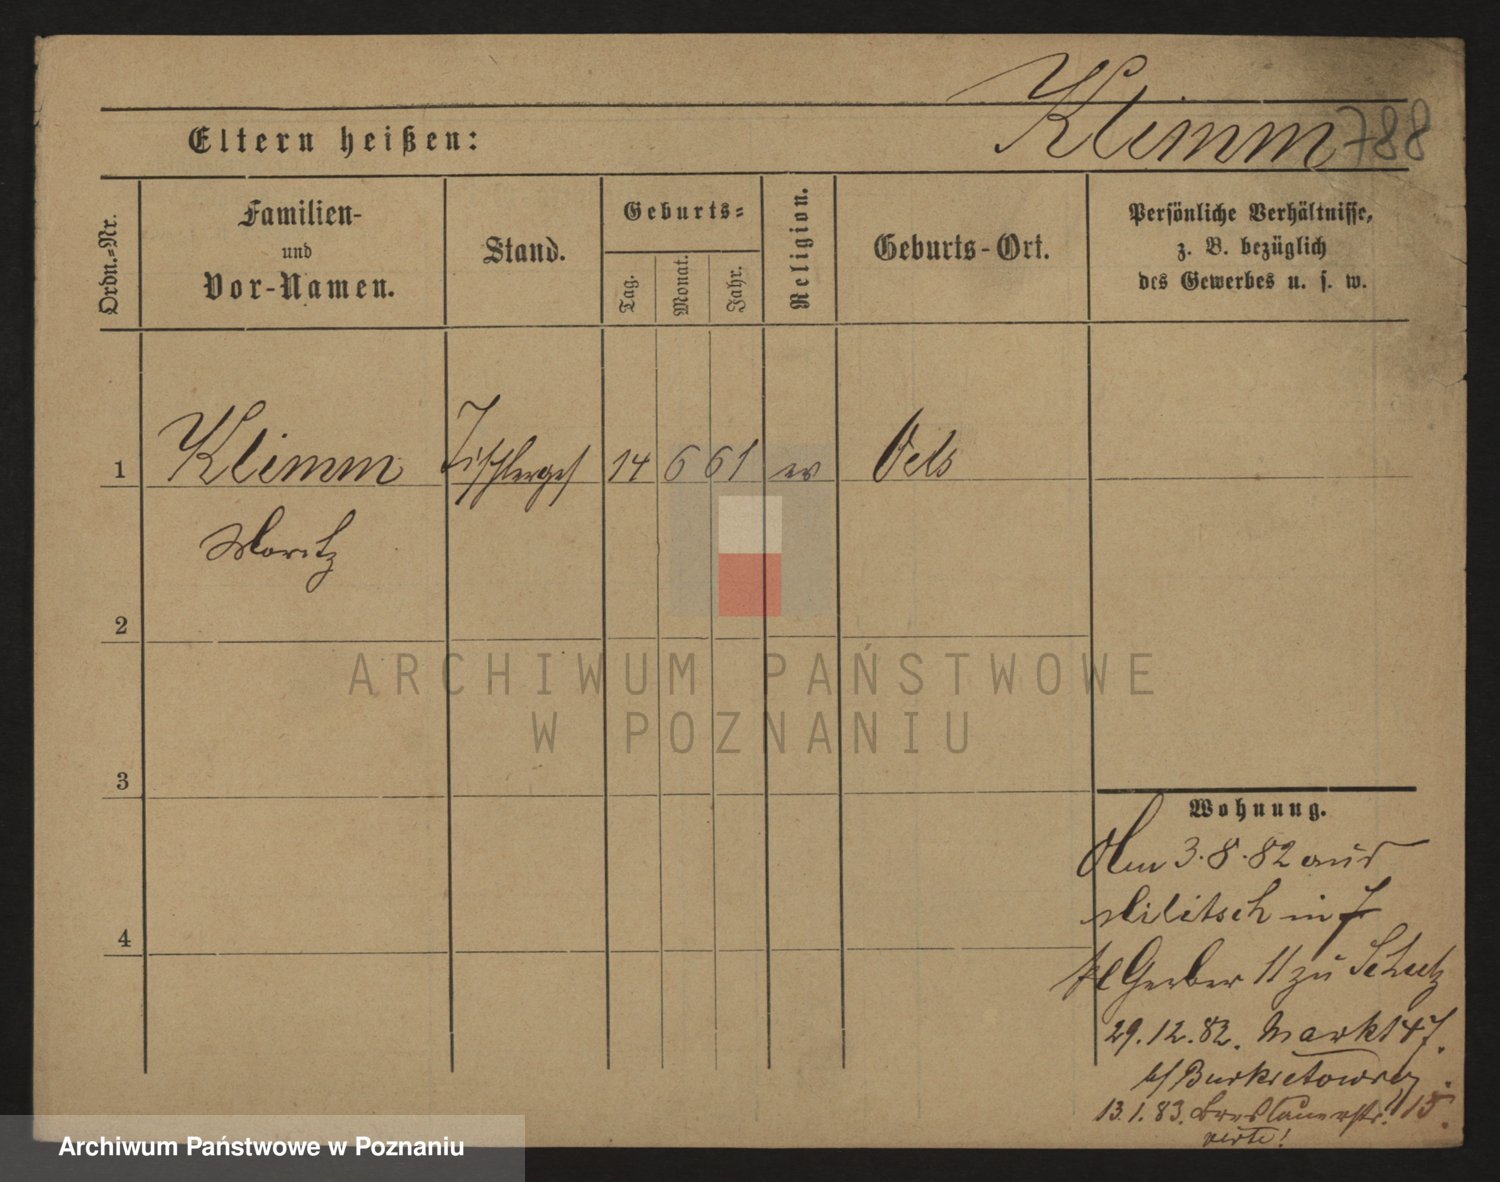 Klimm 788
Eltern heißen:
Ordn.-Nr.
Familien-
und
Vor-Namen.
Stand.
Geburts-
Tag.
Monat.
Jahr.
Religion.
Geburts-Ort.
Persönliche Verhältnisse,
z. B. bezüglich
des Gewerbes u. s. w.
1 Klimm Tischlerges 14 6 61 ev Oels
Moritz
2
3
4
ARCHIWUM PAŃSTWOWE
W POZNANIU
Wohnung.
Am 3.8.82 aus
Militsch in
kl Gerber 11 zu Schulz
29.12.82. Markt 47.
b/
13.1.83. Breslauerstr. 15.
verte!
Archiwum Państwowe w Poznaniu